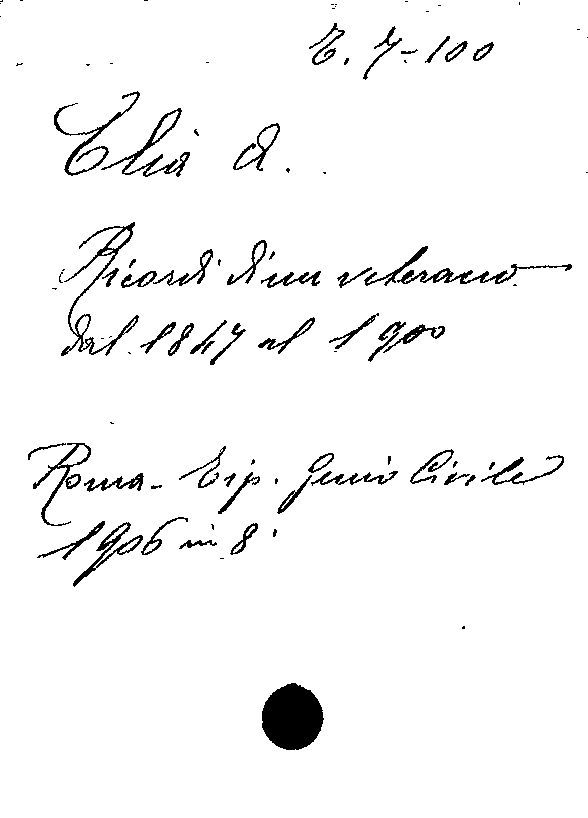 E. 7-100
Elia A.
Ricordi di un veterano
dal 1847 al 1900
Roma - Tip. Genio Civile
1906 in 8°